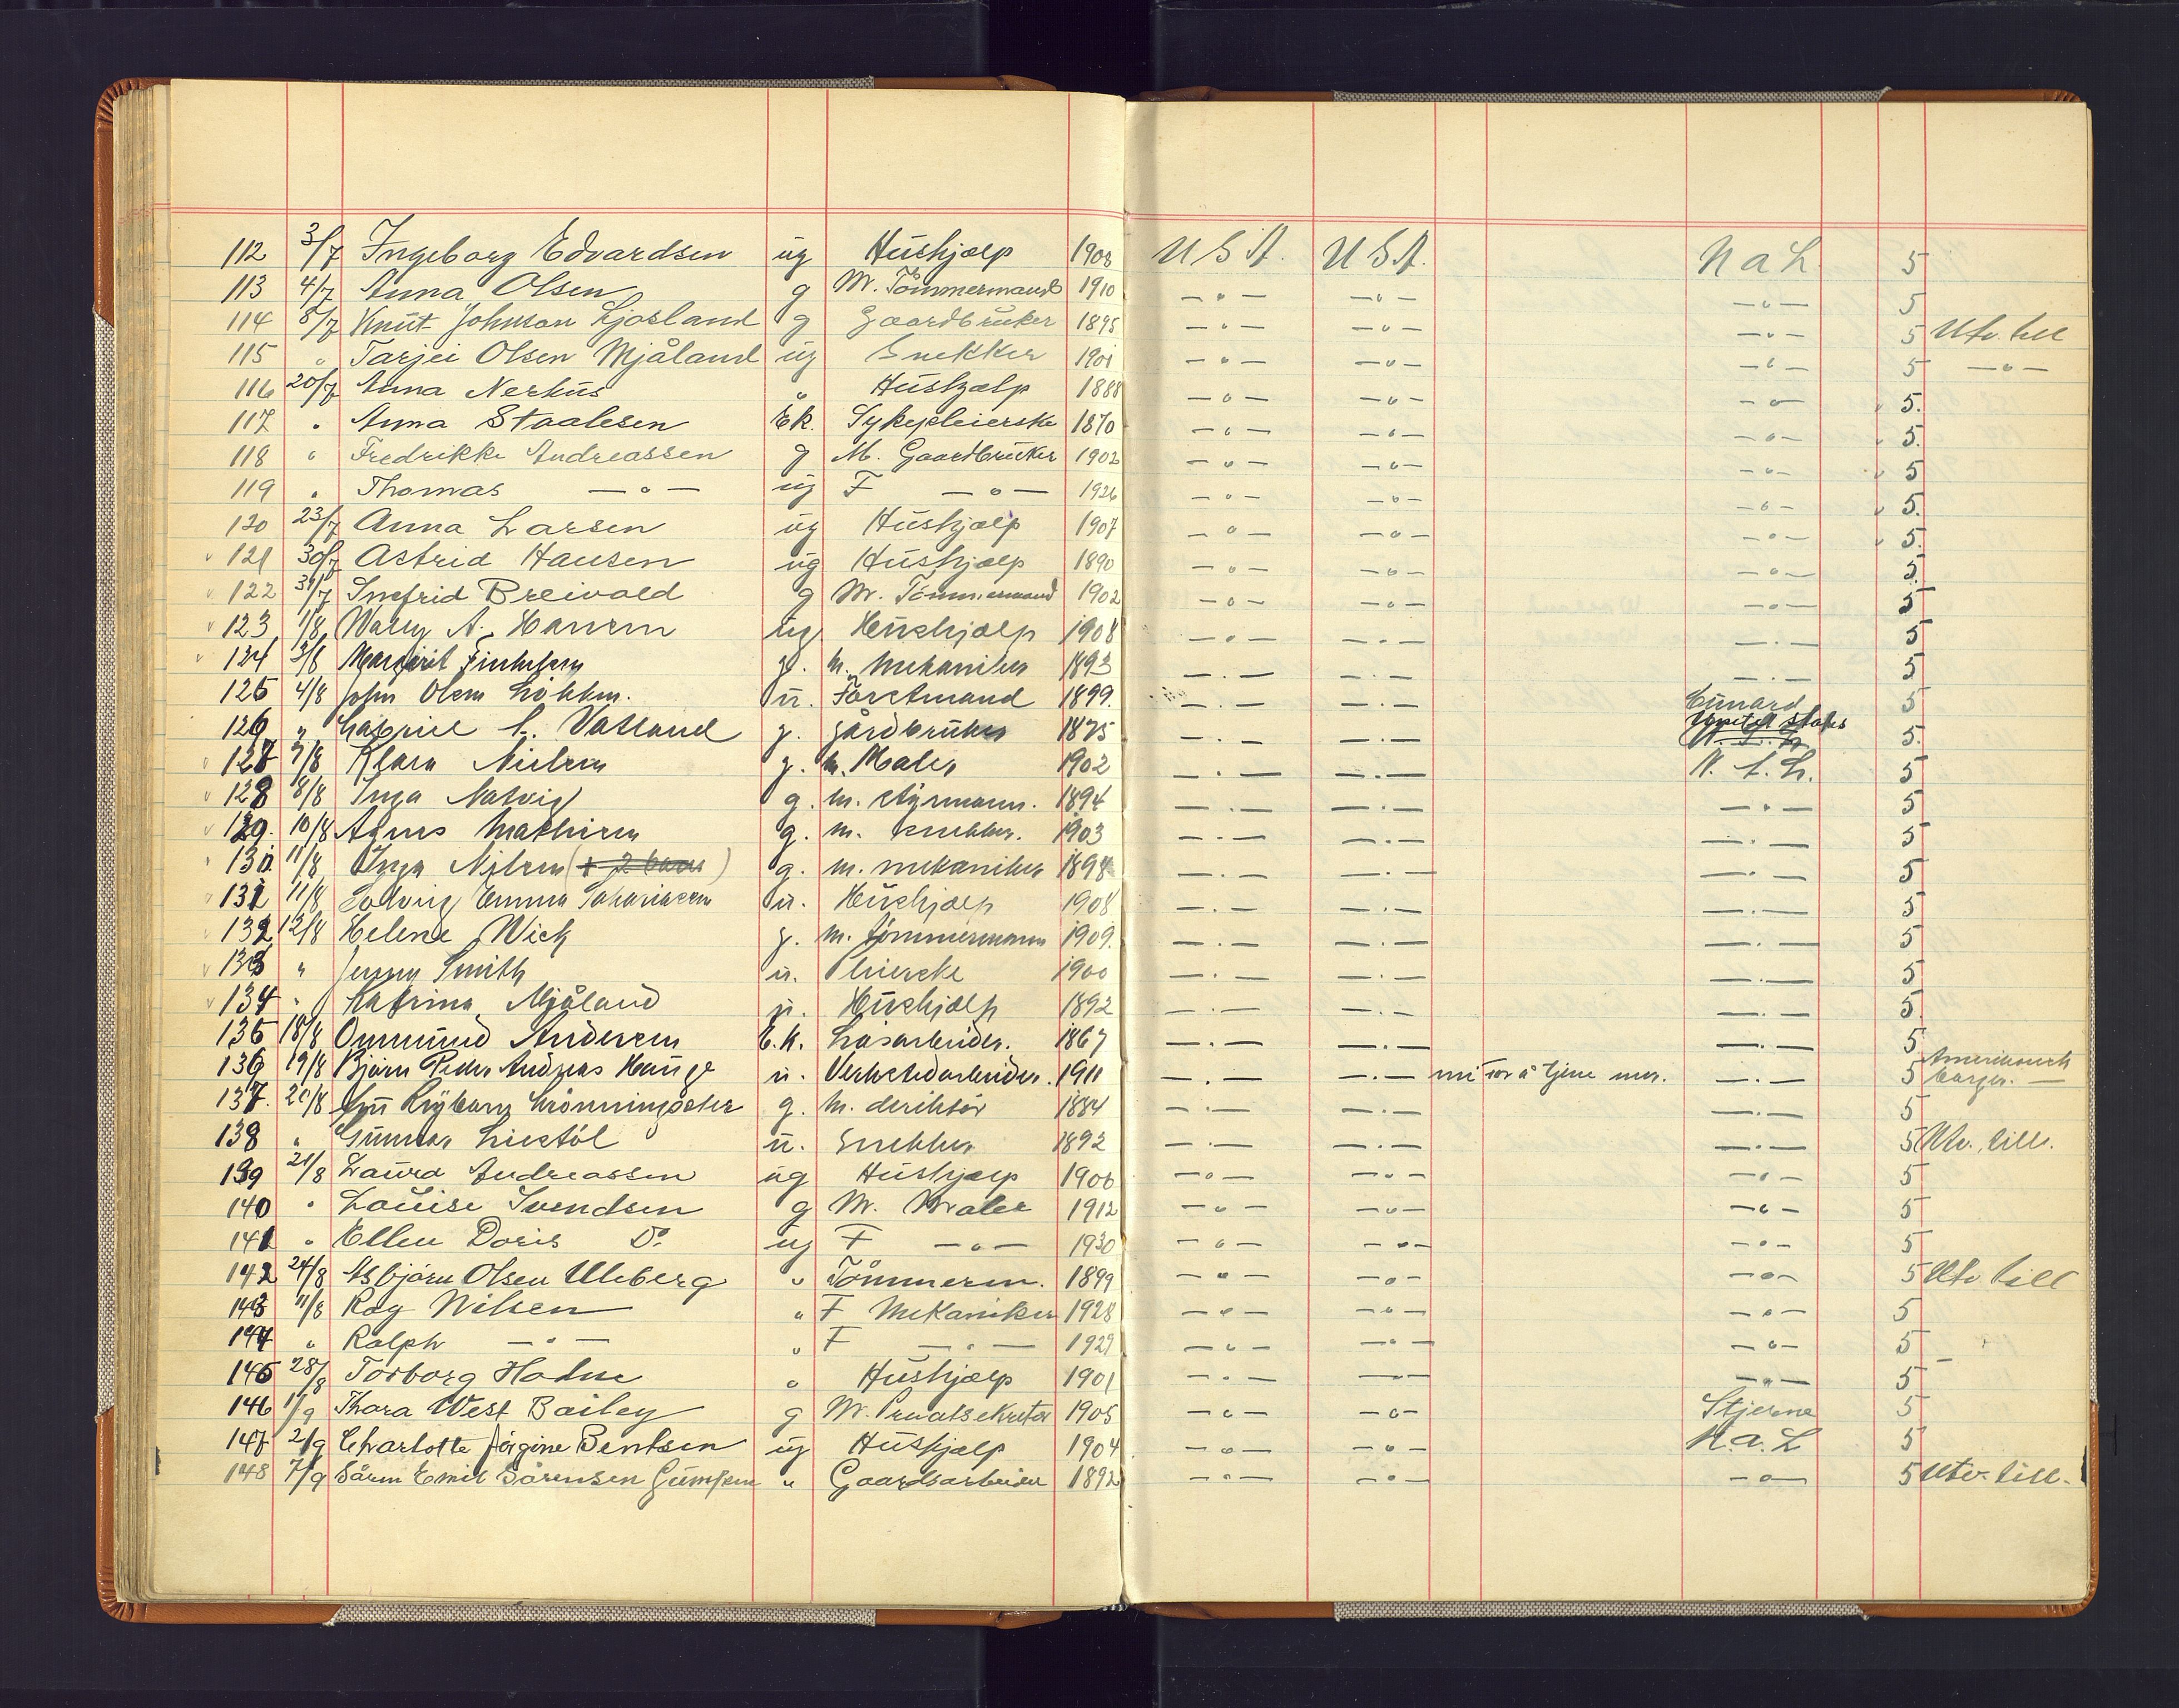 112 3/7 Ingeborg Edvardsen ug Hushjælp 1908 U S A. U S A. N a L. 5
113 4/7 Anna Olsen g M. Tømmermand 1910 —"— —"— —"— 5
114 5/7 Knut Johnson Ljosland g Gaardbruker 1895 —"— —"— —"— 5 Utv. till
115 " Tarjei Olsen Mjåland ug Snekker 1901 —"— —"— —"— 5 —"—
116 20/7 Anna Nerhus " Hushjælp 1888 —"— —"— —"— 5.
117 " Anna Staalesen Ek. Sykepleierske 1870 —"— —"— —"— 5.
118 " Fredrikke Andreassen g M. Gaardbruker 1902 —"— —"— —"— 5
119 " Thomas —"— ug F —"— 1926 —"— —"— —"— 5.
120 23/7 Anna Larsen ug Hushjælp 1907 —"— —"— —"— 5.
121 30/7 Astrid Hansen ug Hushjælp 1890 —"— —"— —"— 5
122 31/7 Breivold g M. Tømmermand 1902 —"— —"— —"— 5
123 1/8 Wally A. Hansen ug Hushjælp 1908 —"— —"— —"— 5
124 2/8 Margarit g. m. mekaniker 1893 —"— —"— —"— 5
125 4/8 John Olsen Løkken. u. Forstmand 1899. —"— —"— Cunard 5
126 " Gabriel A. Vatland g. gårdbruker 1875 —"— —"— United States 5.
127 7/8 Klara Nielsen g. m. Maler 1902 —"— —"— N. A. L. 5
128 8/8 Inga Natvig g. m. styrmann. 1894 —"— —"— —"— 5
129. 10/8 Agnes Mathisen g. m. snekker. 1903 —"— —"— —"— 5
130. 11/8 Inga Nilsen (+ 2 barn) g. m. mekaniker 1898 —"— —"— —"— 5
131 11/8 Solveig Emma Sakariasen u. Hushjælp 1908 —"— —"— —"— 5
132 12/8 Helene Wick g. m. tømmermann 1909. —"— —"— —"— 5
133 " Jenny Smith u. 1900 —"— —"— —"— 5
134 " Katrina Mjåland u. Hushjælp 1892 —"— —"— —"— 5.
135 18/8 Ommund Andersen E.K. Løsarbeider. 1867 —"— —"— —"— 5
136 19/8 Bjørn Peder Andreas Hauge u. Verkstedarbeider. 1911 —"— —"— for å tjene mer. —"— 5 Amerikansk borger. —
137. 20/8 Grønningsæter g. m. deriktør 1884 —"— —"— —"— 5
138 " Gunnar Liestøl u. Snekker 1892 —"— —"— —"— 5 Utv. till.
139 21/8 Laura Andreassen ug Hushjælp 1906 —"— —"— —"— 5
140 " Louise Svendsen g M. Maler 1912 —"— —"— —"— 5
141 " Ellen Doris Do ug F —"— 1930 —"— —"— —"— 5
142 24/8 Asbjørn Olsen Uleberg " Tømmerm. 1899 —"— —"— —"— 5 Utv. till
143 11/8 Roy Nilsen " F Mekaniker 1928 —"— —"— —"— 5
144 " Ralph —"— " F —"— 1929 —"— —"— —"— 5
145 28/8 Torborg Hodne " Hushjælp 1901 —"— —"— —"— 5
146 1/9 Thora West Bailey g M. Privatsekretær 1905 —"— —"— Stjerne 5
147 2/9 Charlotte Jørgine Bentsen ug Hushjælp 1904 —"— —"— N.a.L 5
148 7/9 Søren Emil Sørensen " Gaardsarbeider 1892 —"— —"— —"— 5 Utv. till.